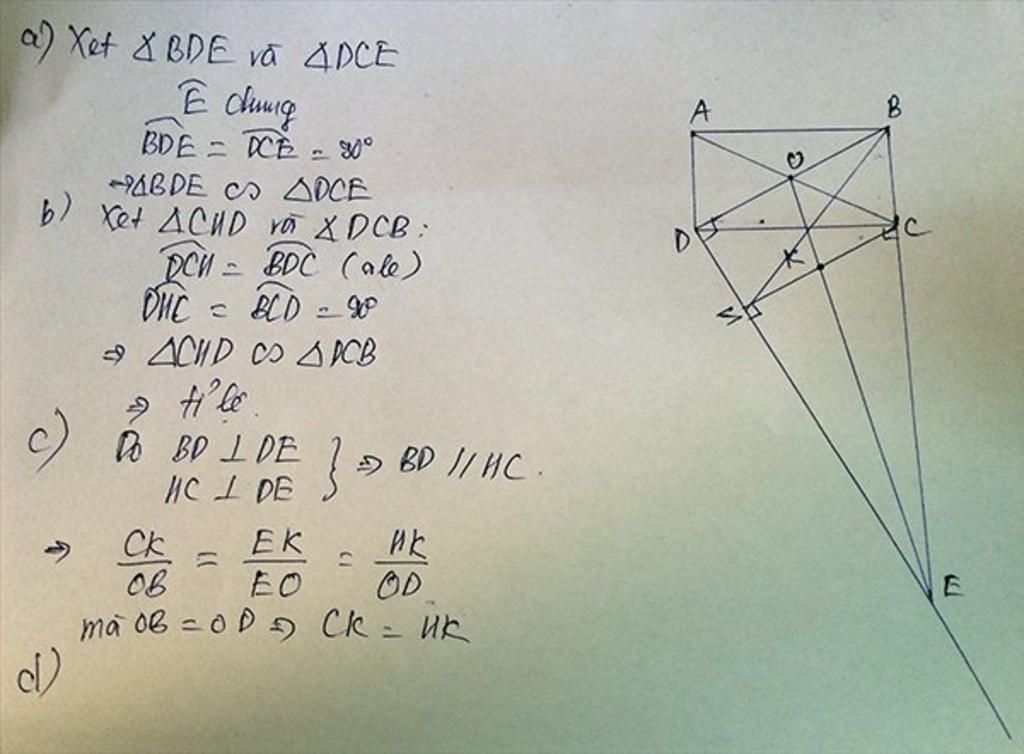 a) Xet ∆BDE và ∆DCE
Ê chung
BDE = DCE = 90°
⇒ ∆BDE ∽ ∆DCE
b) Xet ∆CHD và ∆DCB:
DCH = BDC (slt)
DHC = BCD = 90°
⇒ ∆CHD ∽ ∆DCB
⇒ tỉ lệ.
c) Do BD ⊥ DE
HC ⊥ DE } ⇒ BD // HC.
⇒ CK/OB = EK/EO = HK/OD
mà OB = OD ⇒ CK = HK
d)
A B
O
D C
K
E